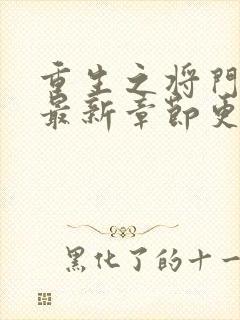 重生之将门
最新章节更
黑化了的十一